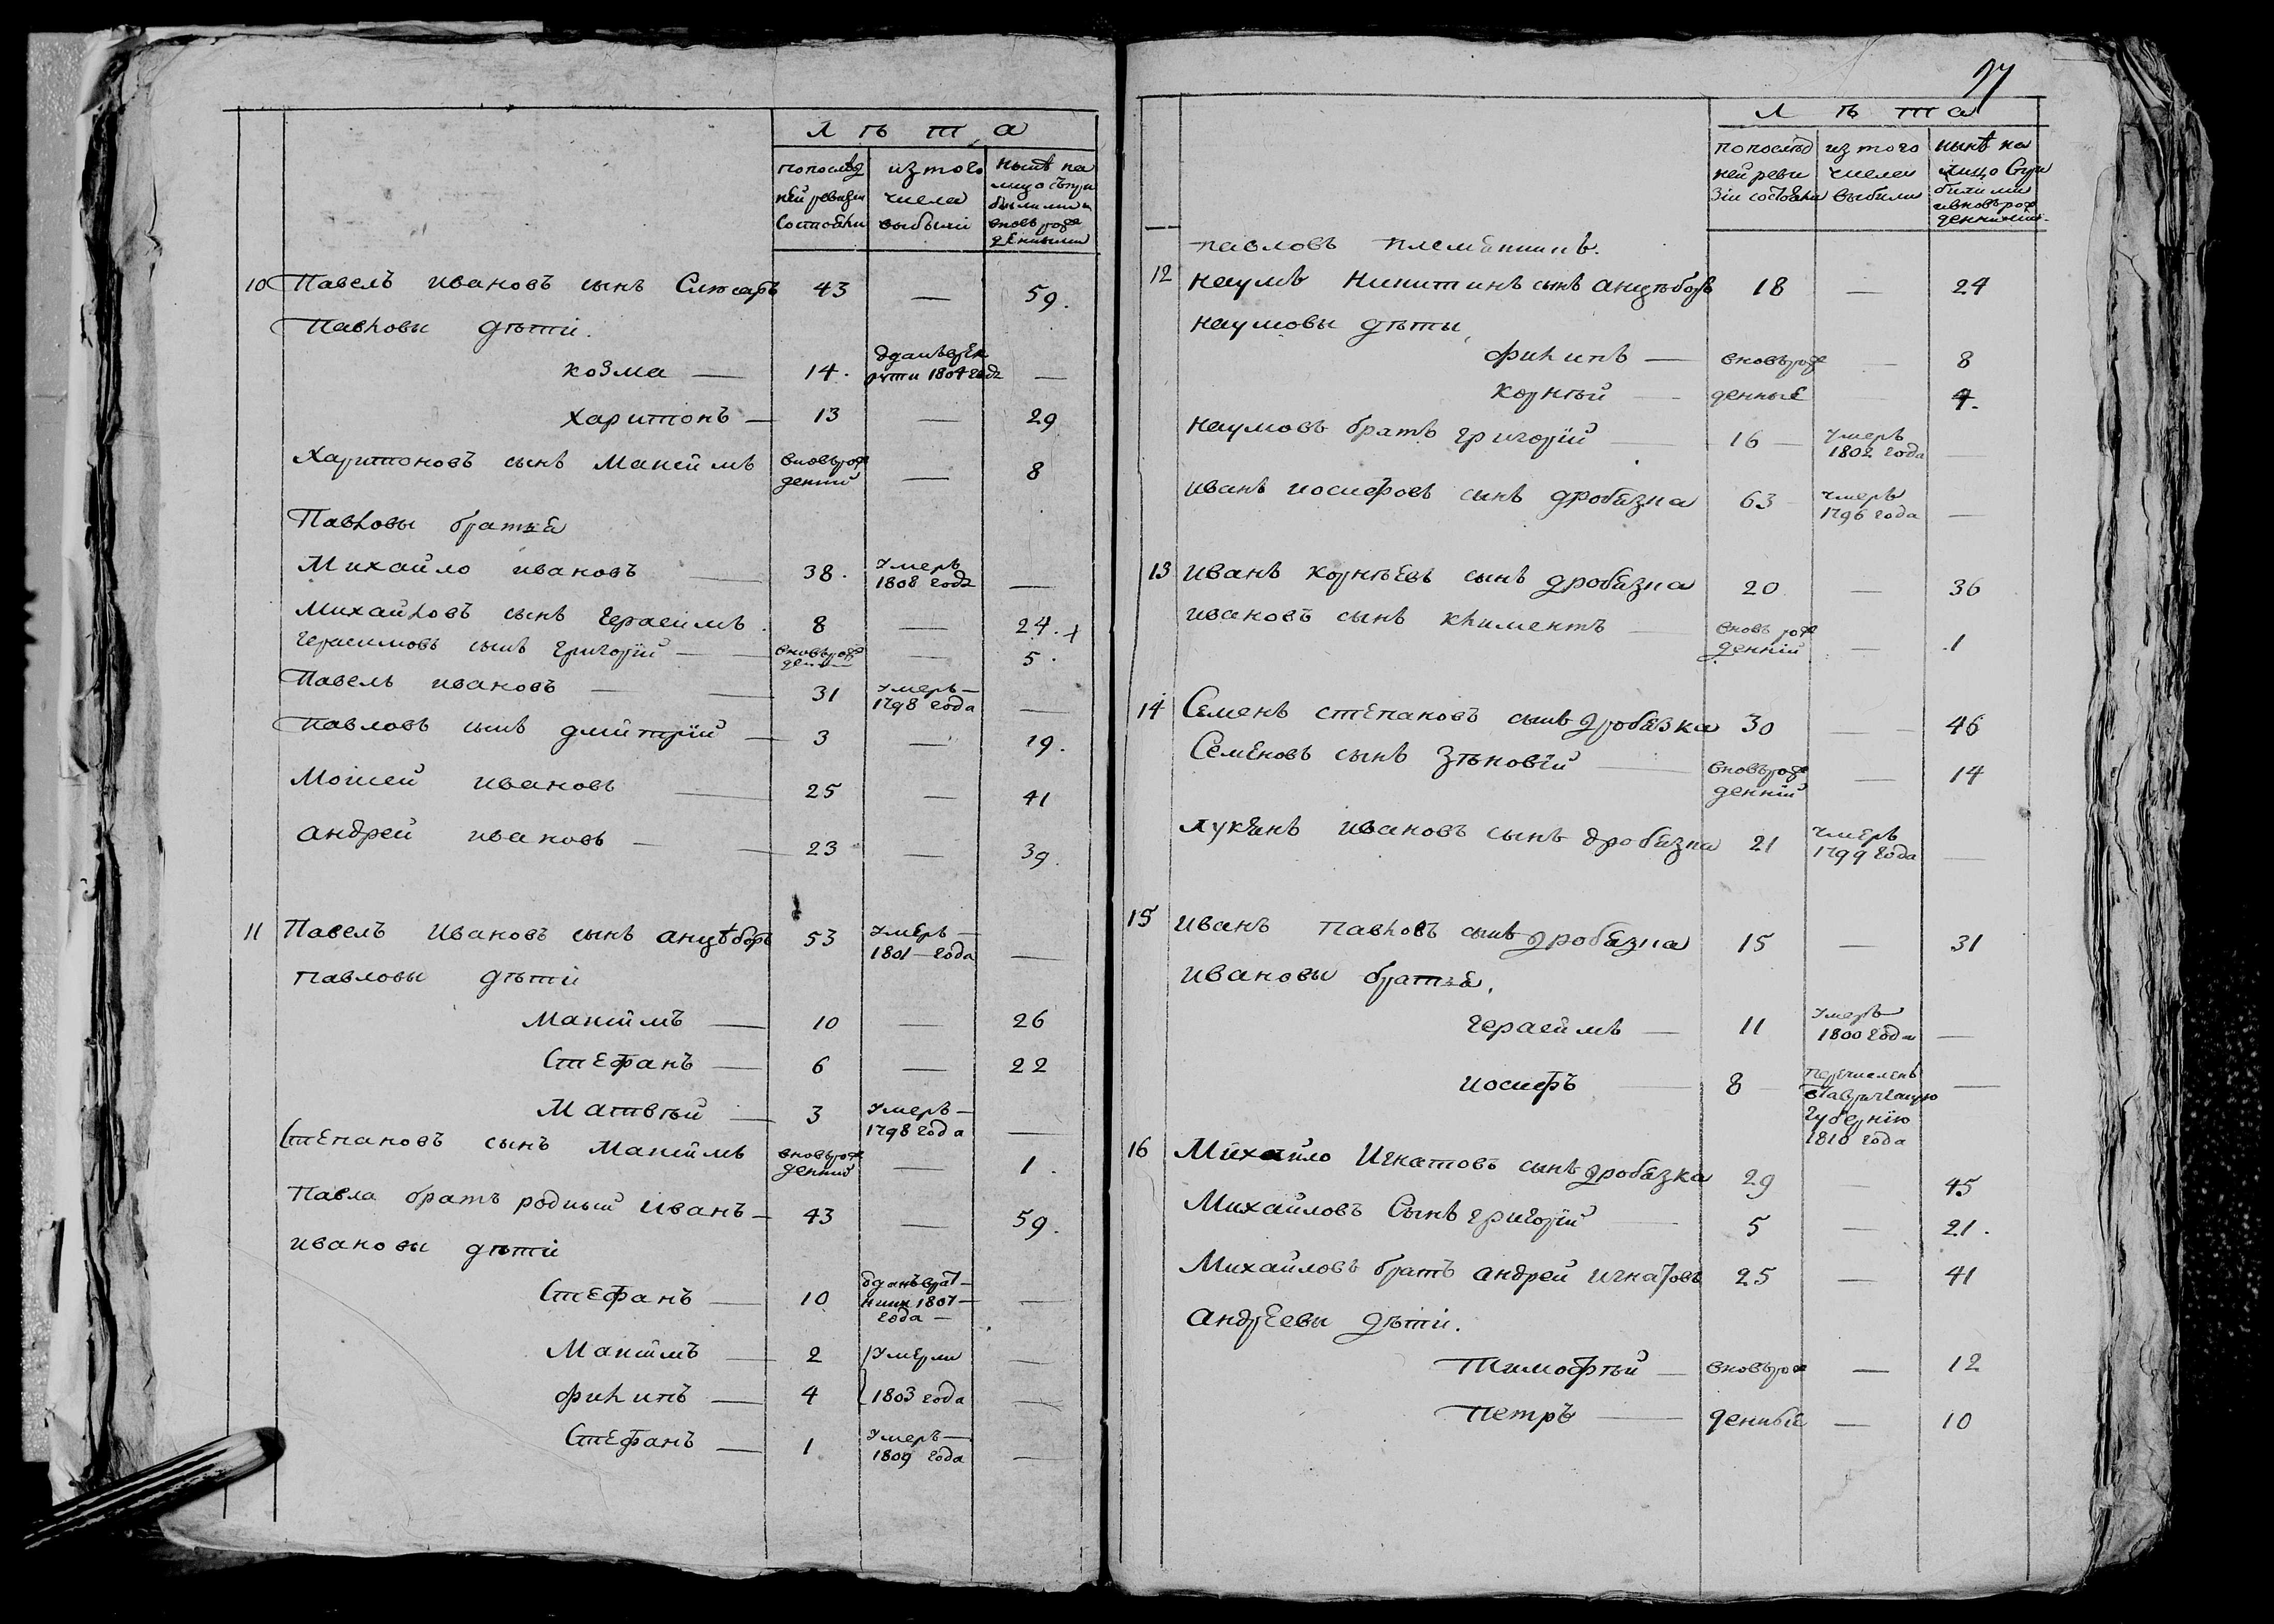 Лѣта
попослѣд из того нынѣ на
ней ревизіи числа лицо съпри
состояли выбыли былыми и
вновьрож
денными
10 Павелъ ивановъ сынъ 43 — 59.
Павловы дѣти.
козма — 14. 1804 года —
харитонъ — 13 — 29
Харитоновъ сынъ Максимъ вноврож
денній — 8
Павловы братья
Михайло ивановъ — 38. умеръ
1808 года —
Михайловъ сынъ герасимъ. 8 — 24.
герасимовъ сынъ григорій — вноврож
— 5.
Павелъ ивановъ — 31 умеръ —
1798 года —
Павловъ сынъ дмитрій — 3 — 19.
Моисей ивановъ — 25 — 41
андрей ивановъ — 23 — 39.
11 Павелъ Ивановъ сынъ анцѣборъ 53 умеръ —
1801 — года —
Павловы дѣти
Максимъ — 10 — 26
Стефанъ — 6 — 22
Матвѣй — 3 умеръ —
1798 года —
Степановъ сынъ Максимъ вноврож
денній — 1.
Павла братъ родный иванъ — 43 — 59.
ивановы дѣти
Стефанъ — 10
1807 —
года — —
Максимъ — 2 умерли —
филипъ — 4 1803 года —
Стефанъ — 1 умеръ —
1809 года —
Лѣта
попослѣд из того нынѣ на
ней реви числа лицо Спри
зіи состояли выбили билими
ивновьрож
денними
павловъ племянникъ.
12 наумъ Никитинъ сынъ анцѣборъ 18 — 24
наумовы дѣти,
филипъ — вновьрож — 8
корнѣй — денные — 4.
наумовъ братъ григорій — 16 — умеръ
1802 года —
иванъ иосифовъ сынъ дробязка 63 умеръ
1796 года —
13 иванъ корнѣевъ сынъ дробязка 20 — 36
ивановъ сынъ климентъ — вновь рож
денній — 1
14 Семенъ степановъ сынъ дробязка 30 — 46
Семеновъ сынъ зѣновій — вновьрож
денній — 14
лукянъ ивановъ сынъ дробязка 21 умеръ
1799 года —
15 иванъ павловъ сынъ дробязка 15 — 31
ивановы братья.
герасимъ — 11 умеръ
1800 года —
иосифъ — 8 — перечисленъ —
губернію
1810 года
16 Михайло Игнатовъ сынъ дробязка 29 — 45
Михайловъ Сынъ григорій — 5 — 21.
Михайловъ братъ андрей игнатовъ 25 — 41
андреевы дѣти.
тимофѣй — вновьрож — 12
петръ — денные — 10